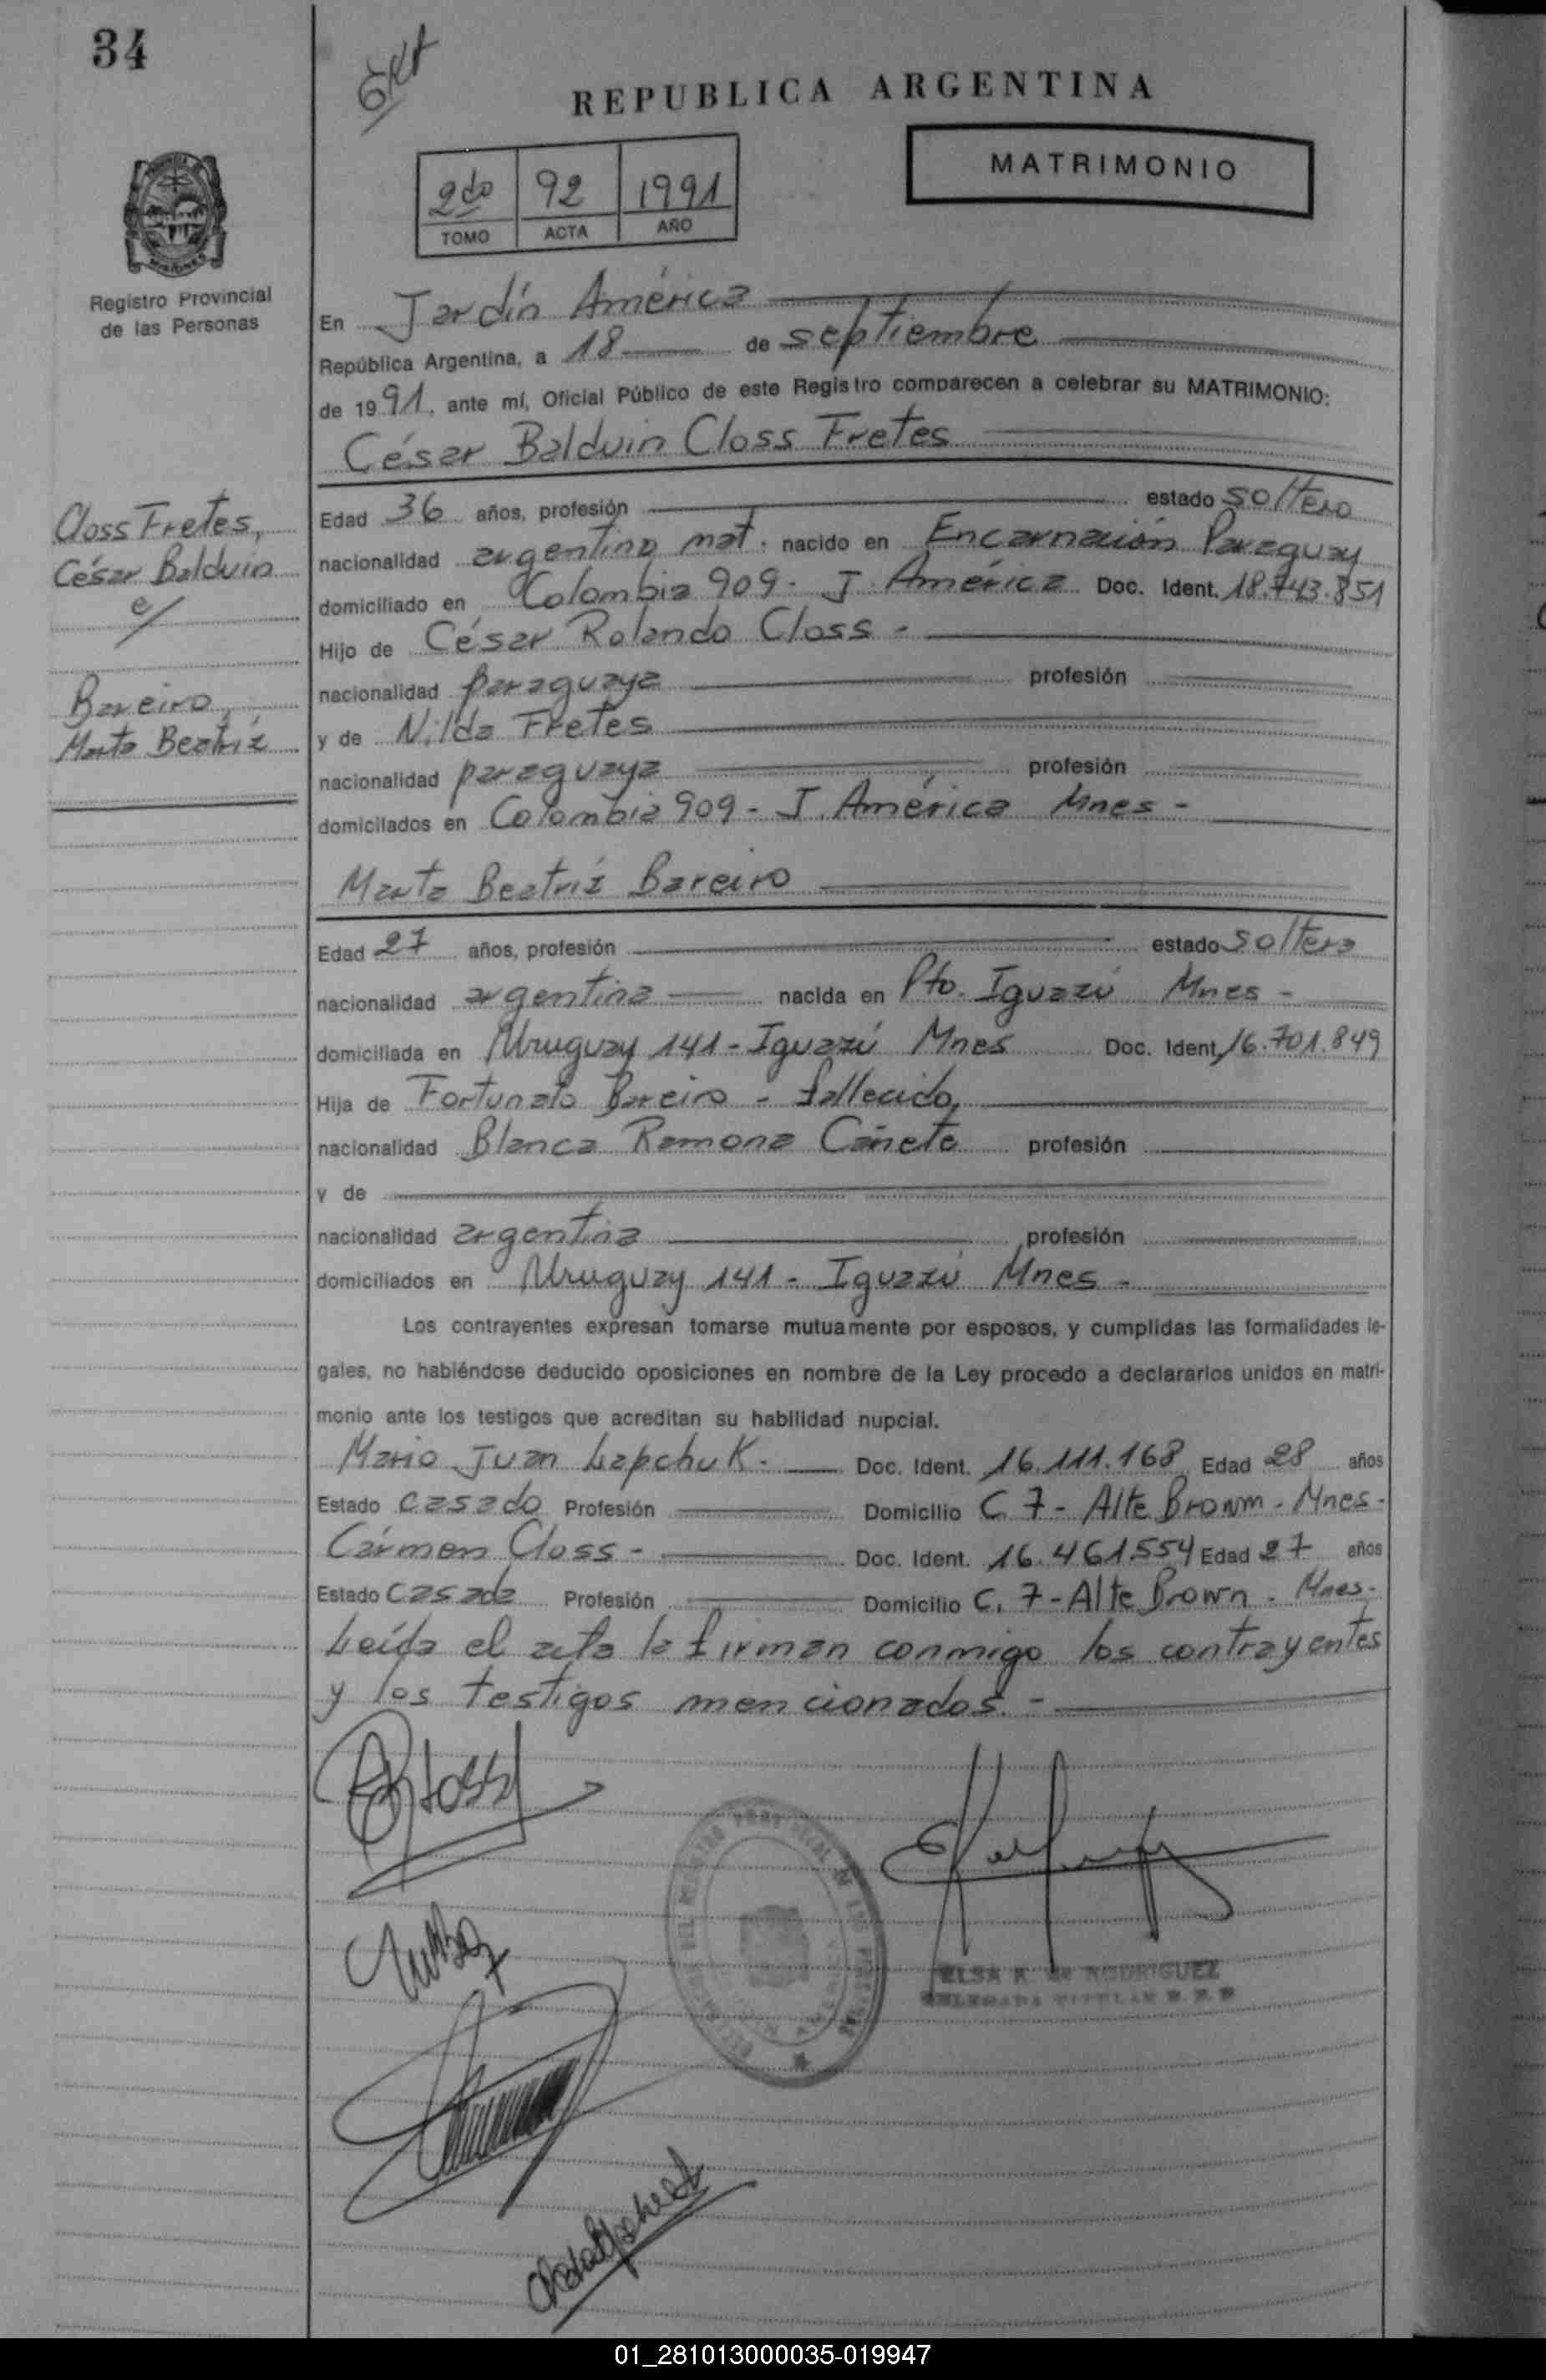 34
REPUBLICA ARGENTINA
MATRIMONIO
2do 92 1991
TOMO ACTA AÑO
Registro Provincial
de las Personas
En Jardín América
República Argentina, a 18 de septiembre
de 1991, ante mí, Oficial Público de este Registro comparecen a celebrar su MATRIMONIO:
César Balduin Closs Fretes
Closs Fretes,
César Balduin
c/
Bareiro,
Marta Beatríz
Edad 36 años, profesión estado soltero
nacionalidad argentina nat. nacido en Encarnación Paraguay
domiciliado en Colombia 909 - J. América Doc. Ident. 18.743.851
Hijo de César Rolando Closs -
nacionalidad paraguaya profesión
y de Nilda Fretes
nacionalidad paraguaya profesión
domiciliados en Colombia 909 - J. América Mnes -
Marta Beatríz Bareiro
Edad 27 años, profesión estado soltera
nacionalidad argentina nacida en Pto. Iguazú Mnes -
domiciliada en Uruguay 141 - Iguazú Mnes Doc. Ident. 16.701.849
Hija de Fortunato Bareiro - fallecido,
nacionalidad Blanca Ramona Cañete profesión
y de
nacionalidad argentina profesión
domiciliados en Uruguay 141 - Iguazú Mnes -
Los contrayentes expresan tomarse mutuamente por esposos, y cumplidas las formalidades le-
gales, no habiéndose deducido oposiciones en nombre de la Ley procedo a declararlos unidos en matri-
monio ante los testigos que acreditan su habilidad nupcial.
Mario Juan Lapchuk. Doc. Ident. 16.111.168 Edad 28 años
Estado casado Profesión Domicilio C. 7 - Alte Brown - Mnes -
Cármen Closs - Doc. Ident. 16.461.554 Edad 27 años
Estado casada Profesión Domicilio C. 7 - Alte Brown - Mnes -
Leída el acta la firman conmigo los contrayentes
y los testigos mencionados. -
ELSA R. de RODRIGUEZ
DELEGADA TITULAR R. P. P
01_281013000035-019947